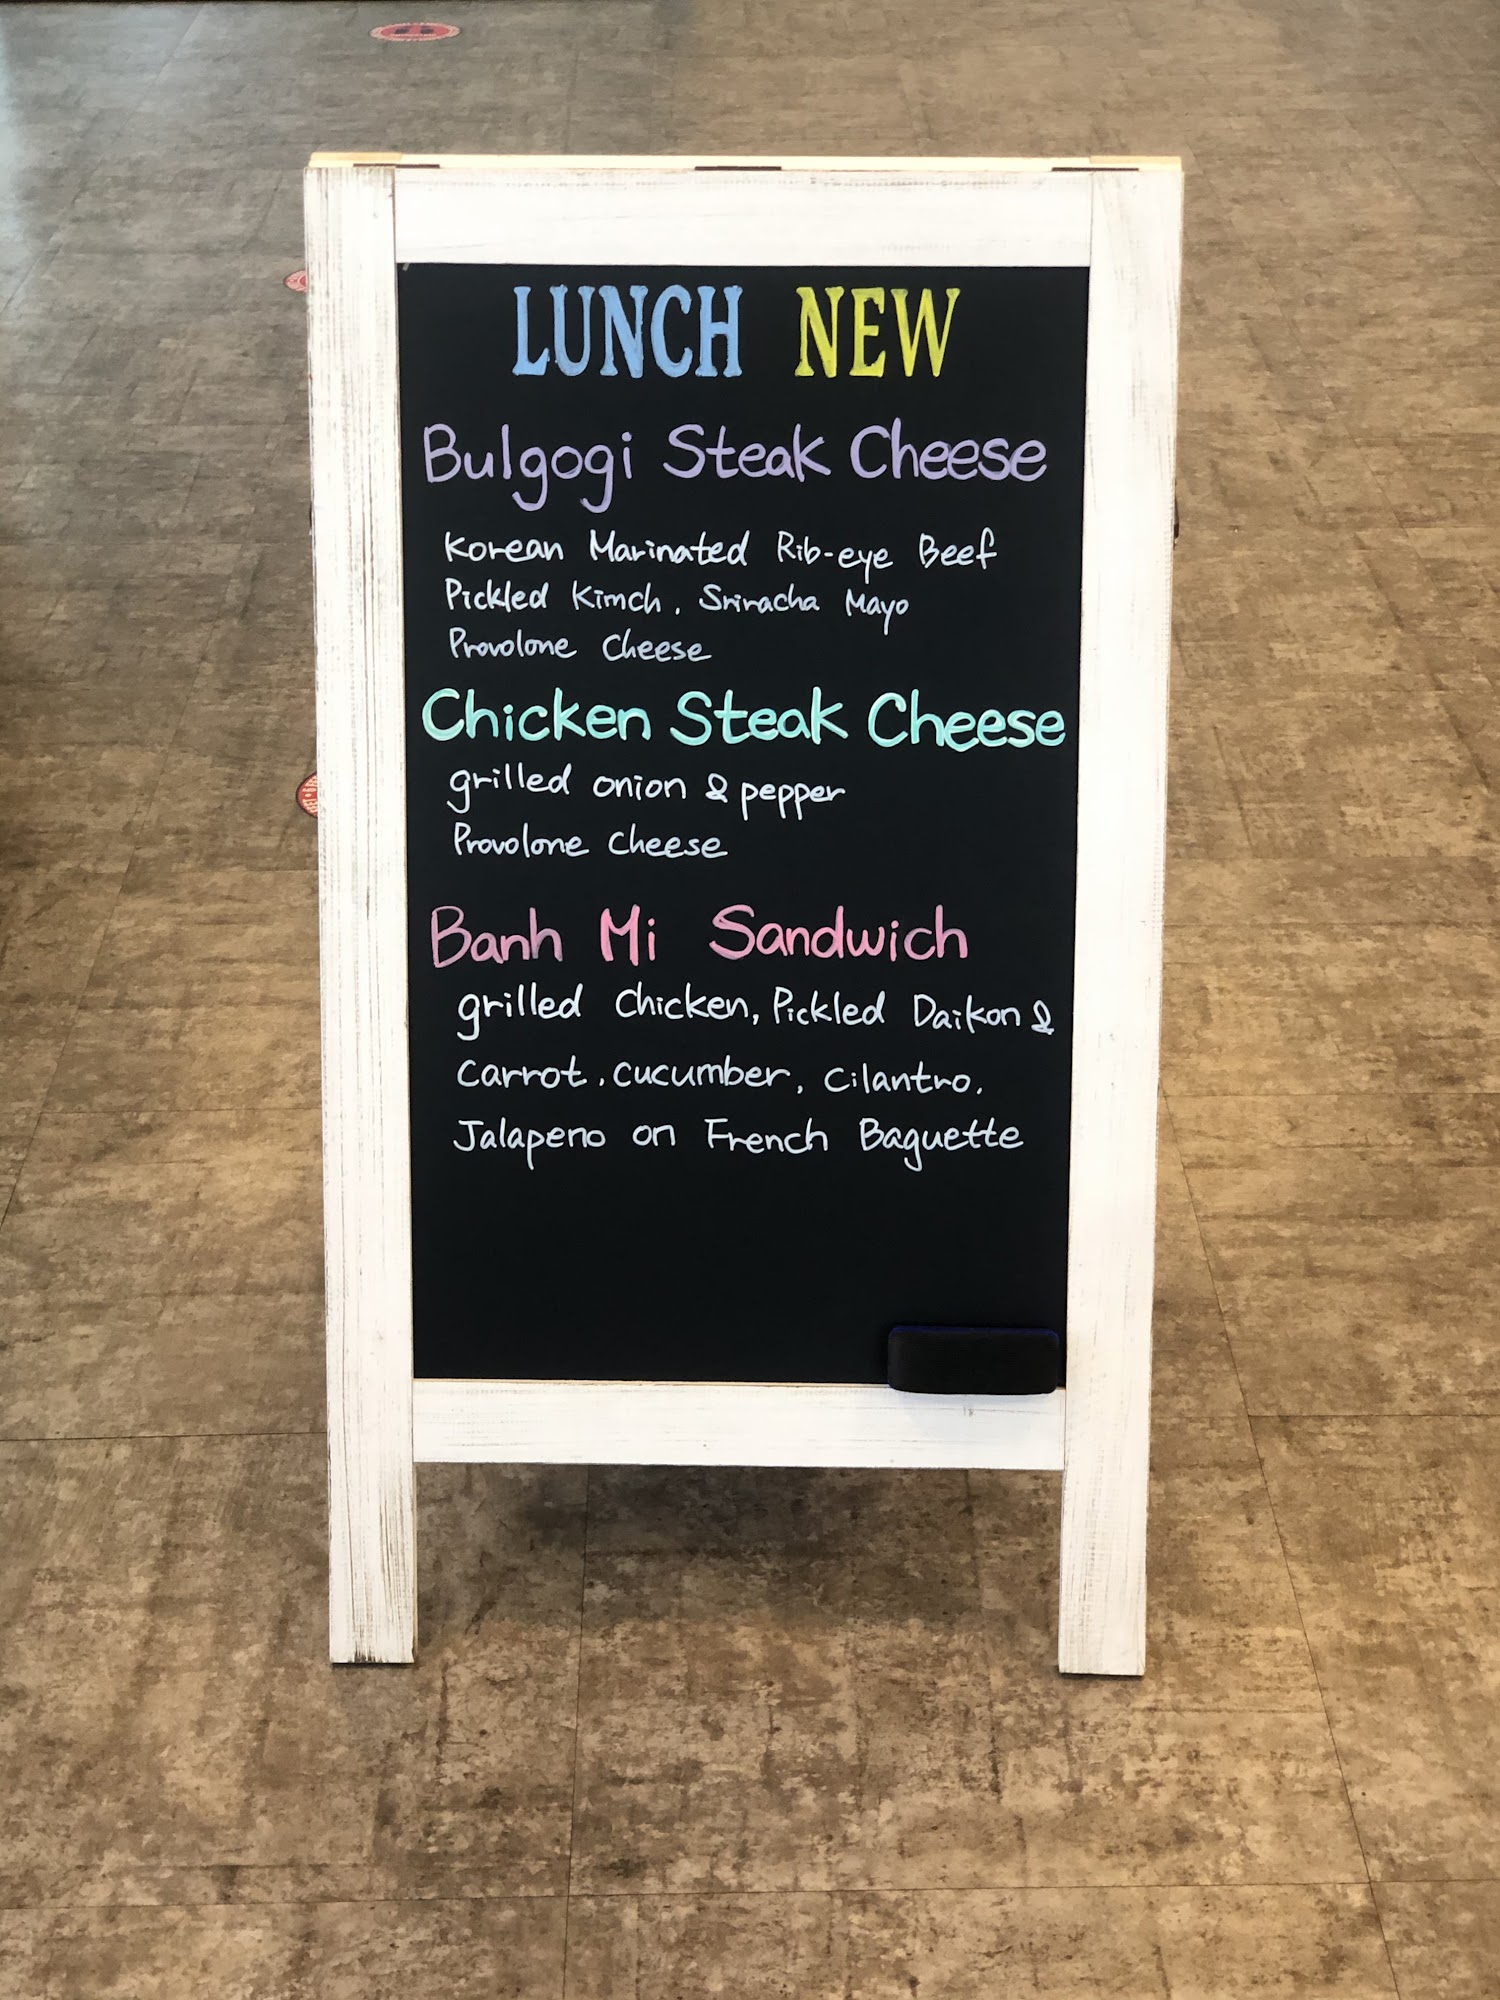 LUNCH NEW
Bulgogi Steak Cheese
Korean Marinated Rib-eye Beef
Pickled Kimch, Sriracha Mayo
Provolone Cheese
Chicken Steak Cheese
grilled onion & pepper
Provolone Cheese
Banh Mi Sandwich
grilled Chicken, Pickled Daikon &
Carrot, cucumber, Cilantro,
Jalapeno on French Baguette